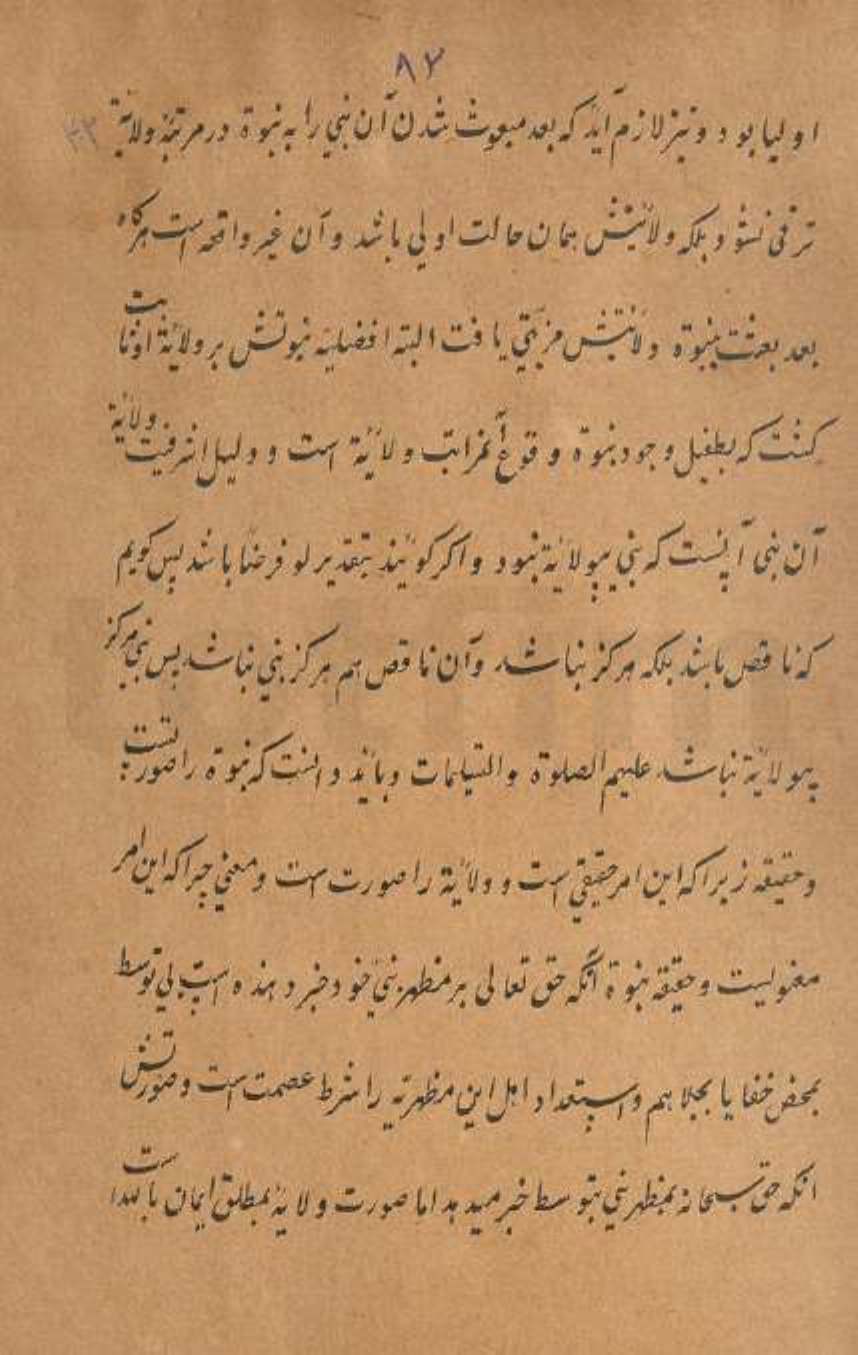 ۸۲
اولیا بود و نیز لازم آید که بعد مبعوث شدن آن نبی را به نبوة در مرتبۀ ولایة
ترقی نشود بلکه ولایتش همان حالت اولی باشد و آن غیر واقعه است هرگاه
بعد بعثت بنبوة ولایتش مزیتی یافت البته افضلیه نبوتش بر ولایة او ثابت
گشت که بطفیل وجود نبوة وقوع آنمراتب ولایة است و دلیل اشرفیت ولایة
آن نبی آنست که نبی بیولایة نبود و اگر گویند بتقدیر لو فرضا باشد پس گویم
که ناقص باشد بلکه هرگز نباشد و آن ناقص هم هرگز نبی نباشد پس نبی هرگز
بیولایة نباشد علیهم الصلوة والتسلیمات و باید دانست که نبوة را صورتست
و حقیقه زیرا که این امر حقیقی است و ولایة را صورت است و معنی چرا که این امر
معنویست و حقیقة نبوة آنکه حق تعالی بر مظهر نبی خود خبر دهنده است بی توسط
بمحض خفا یا بجلا هم و استعداد اهل این مظهریه را شرط عصمت است و صورتش
آنکه حق سبحانه بمظهر نبی بتوسط خبر میدهد اما صورت ولایة بمطلق ایمان بالله است